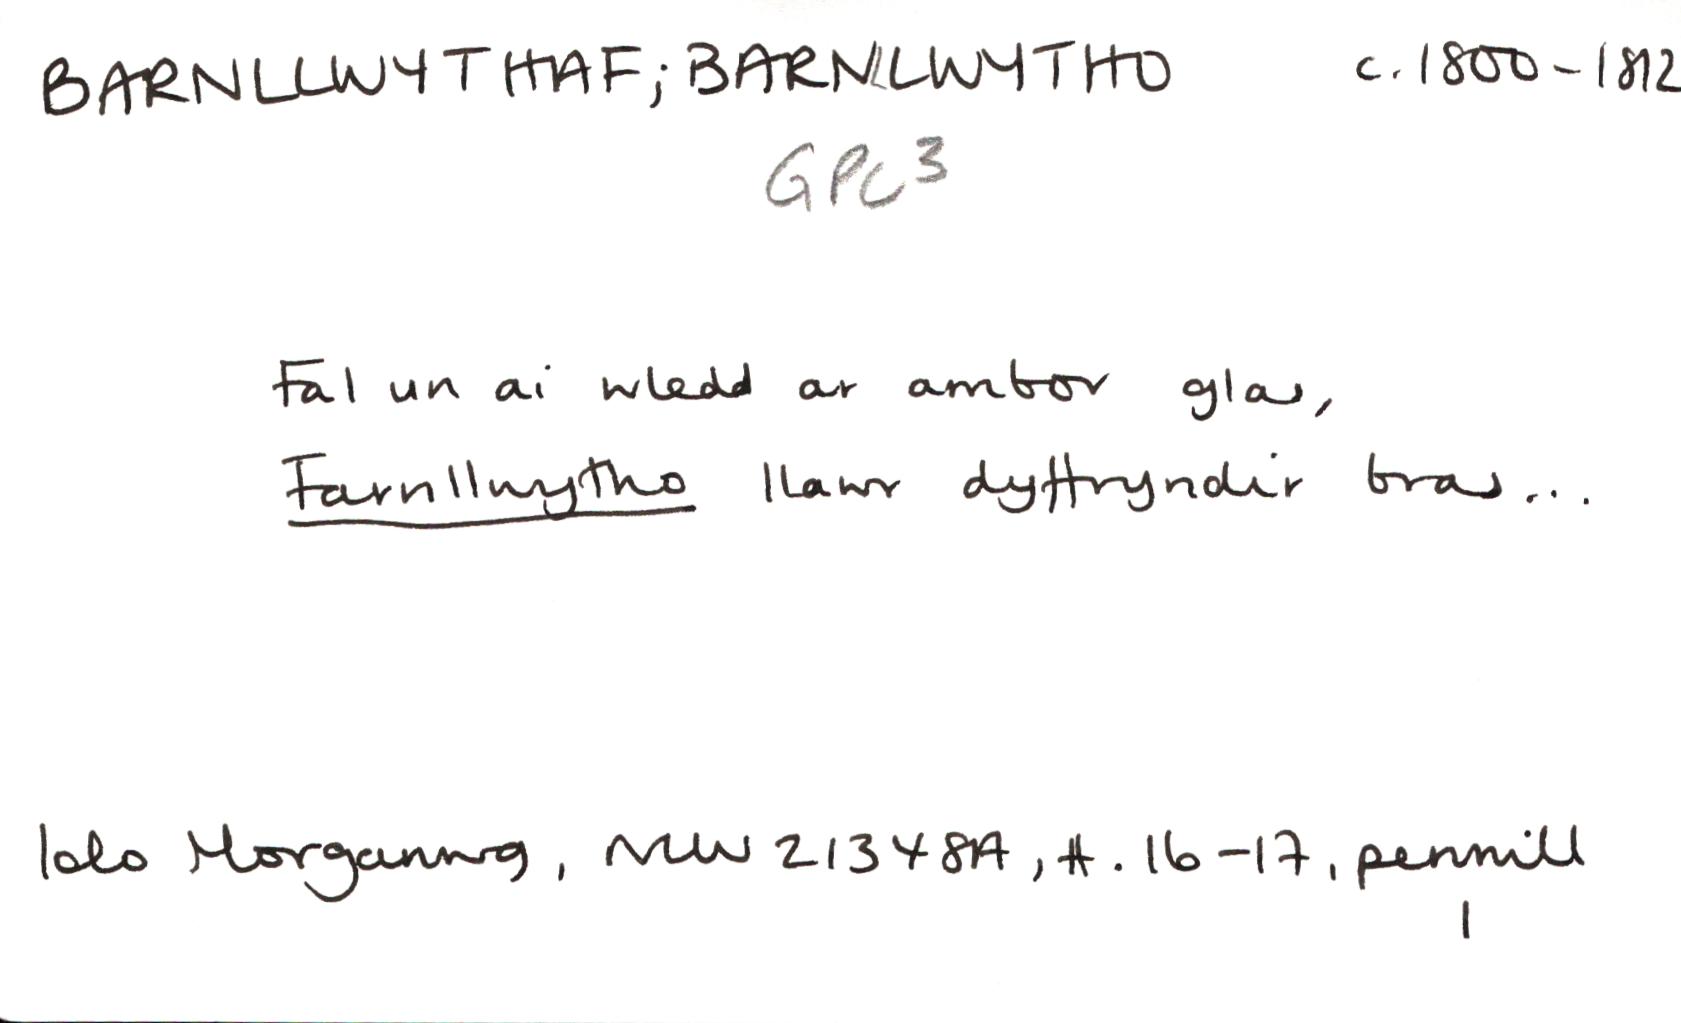 BARNLLWYTHAF; BARNLLWYTHO c. 1800-1812
GPC3
Fal un ai wledd ar ambor glas,
Farnllwytho llawr dyffryndir bras...
Iolo Morganwg, NLW 21348A, ff. 16-17, pennill
1